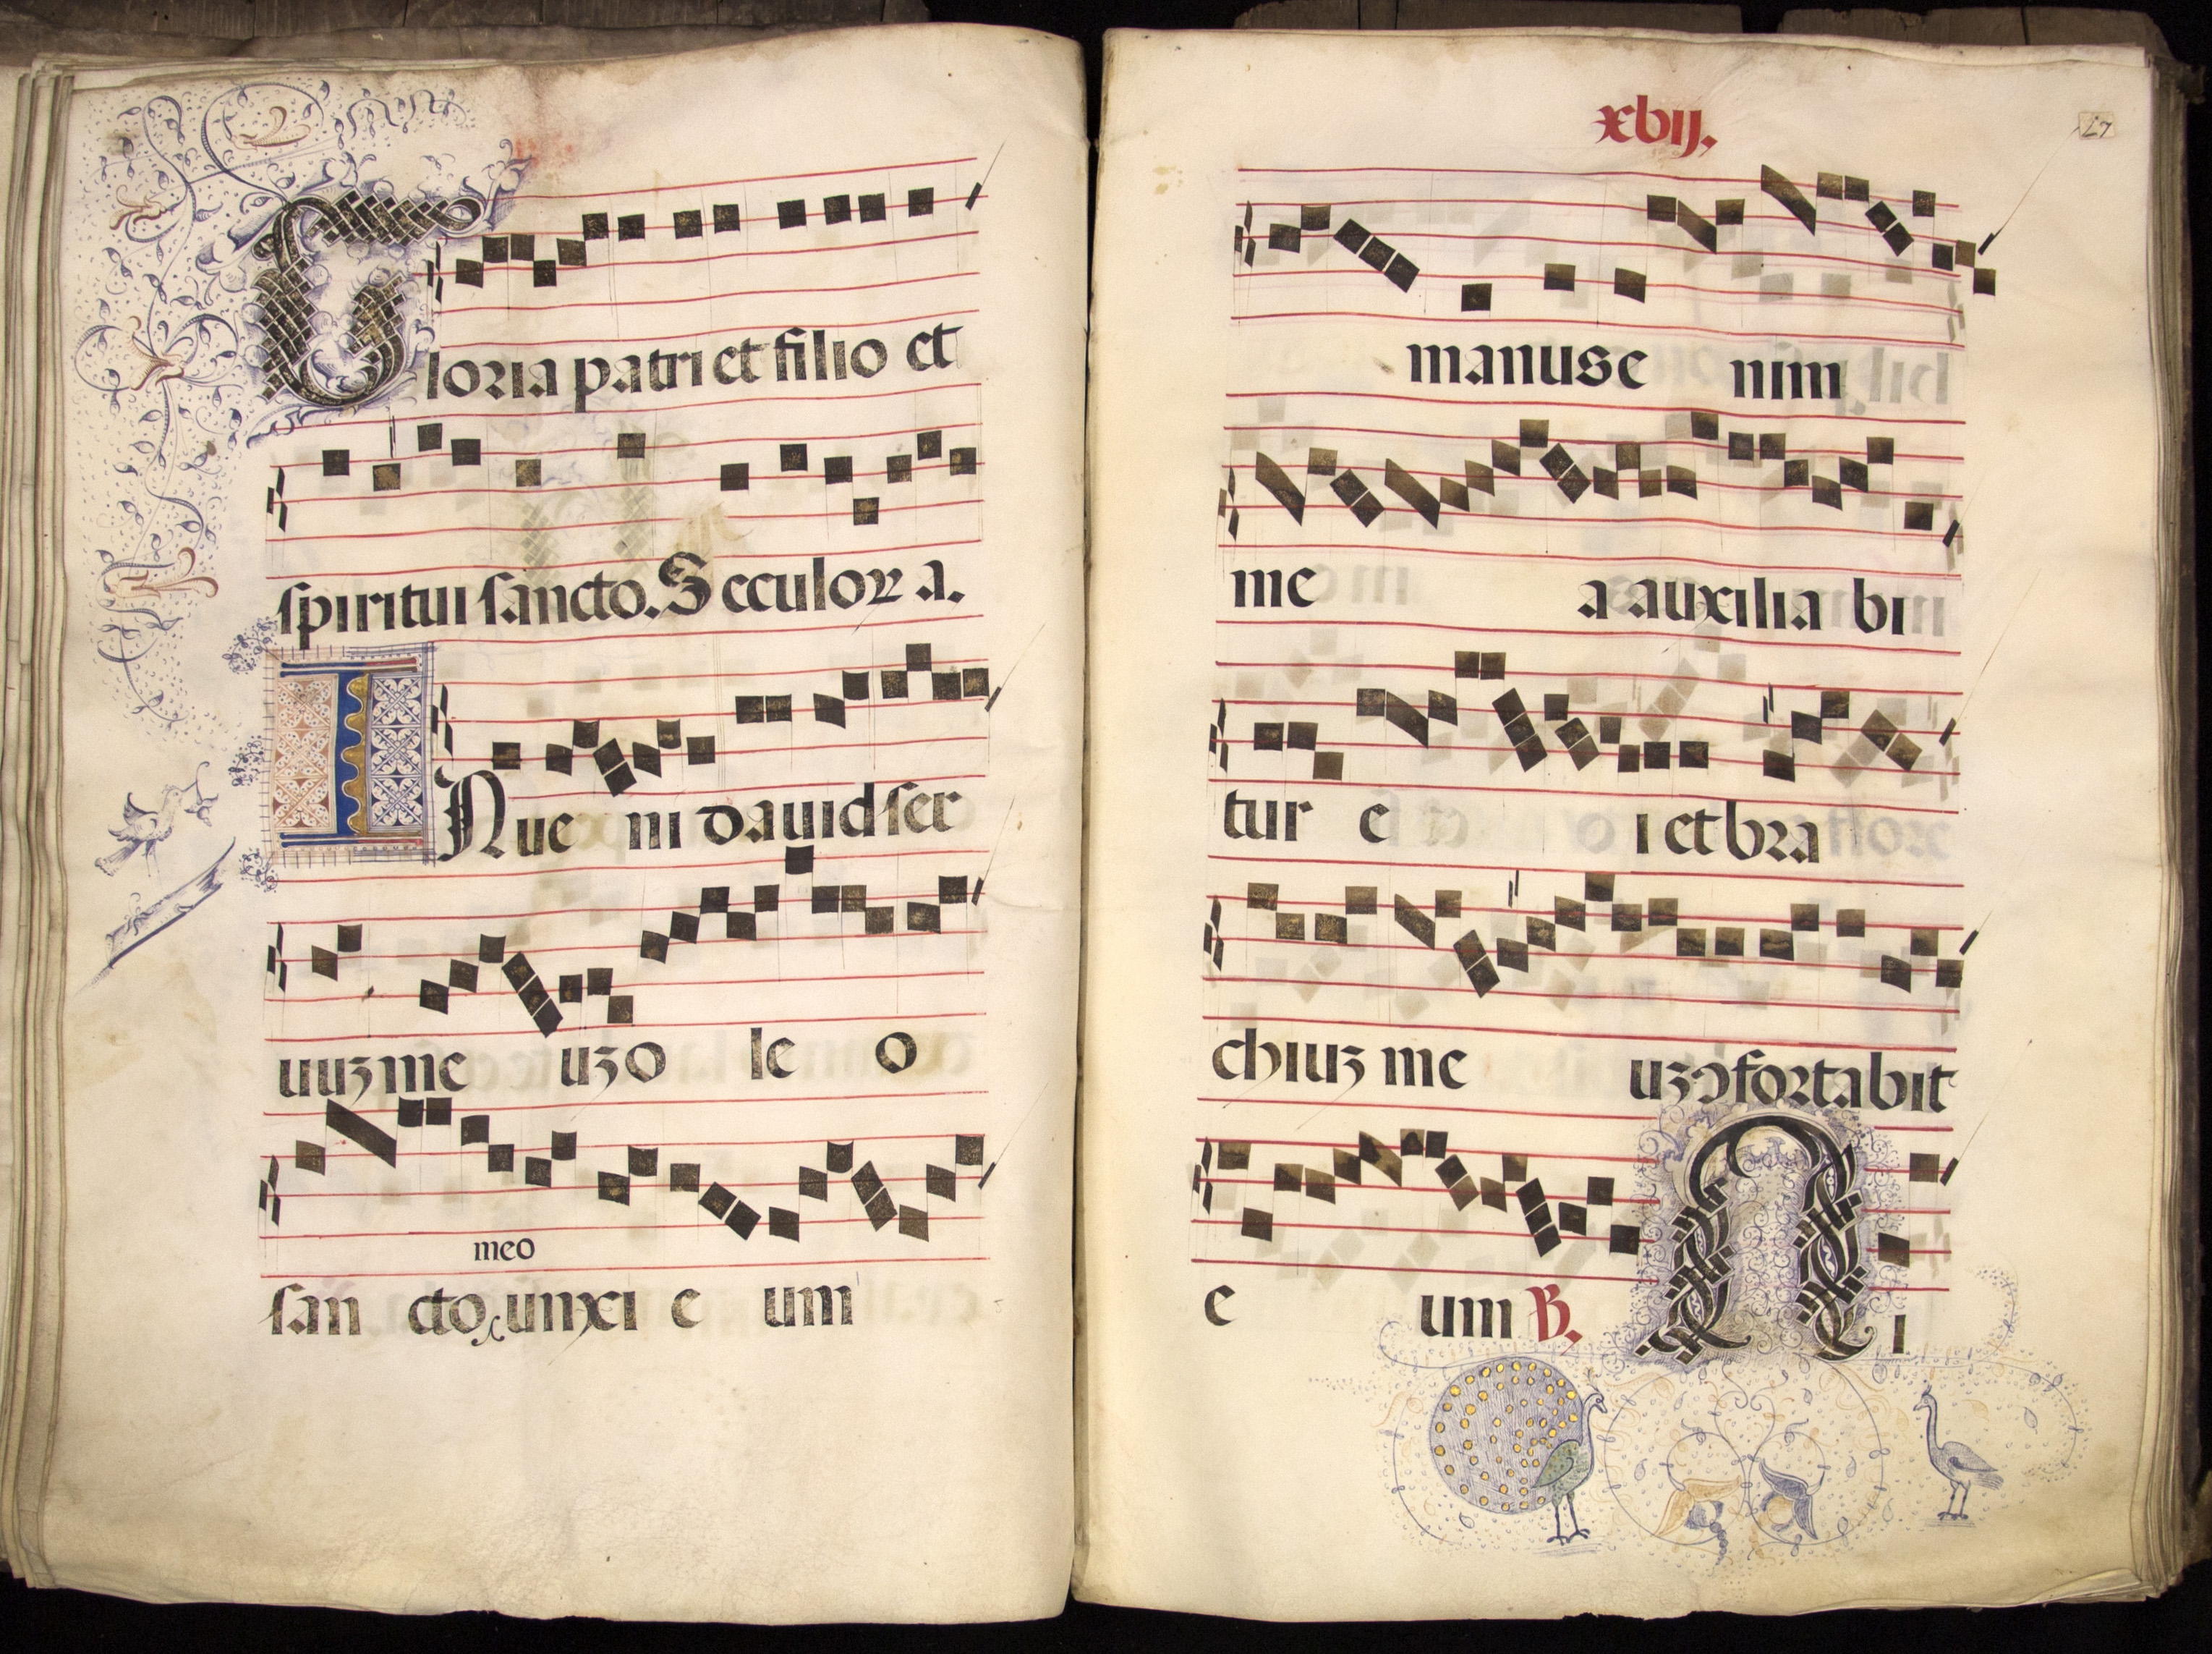 Gloria patri et filio et
spiritui sancto. Seculoꝝ a.
INue ni dauid ser
uuꝫ me uꝫ o le o
meo
san cto, unxi e um
xvij.
17
manus e nim
me a auxilia bi
tur e i et bra
chiuꝫ me uꝫ ↄfortabit
e um ꝶ. N i